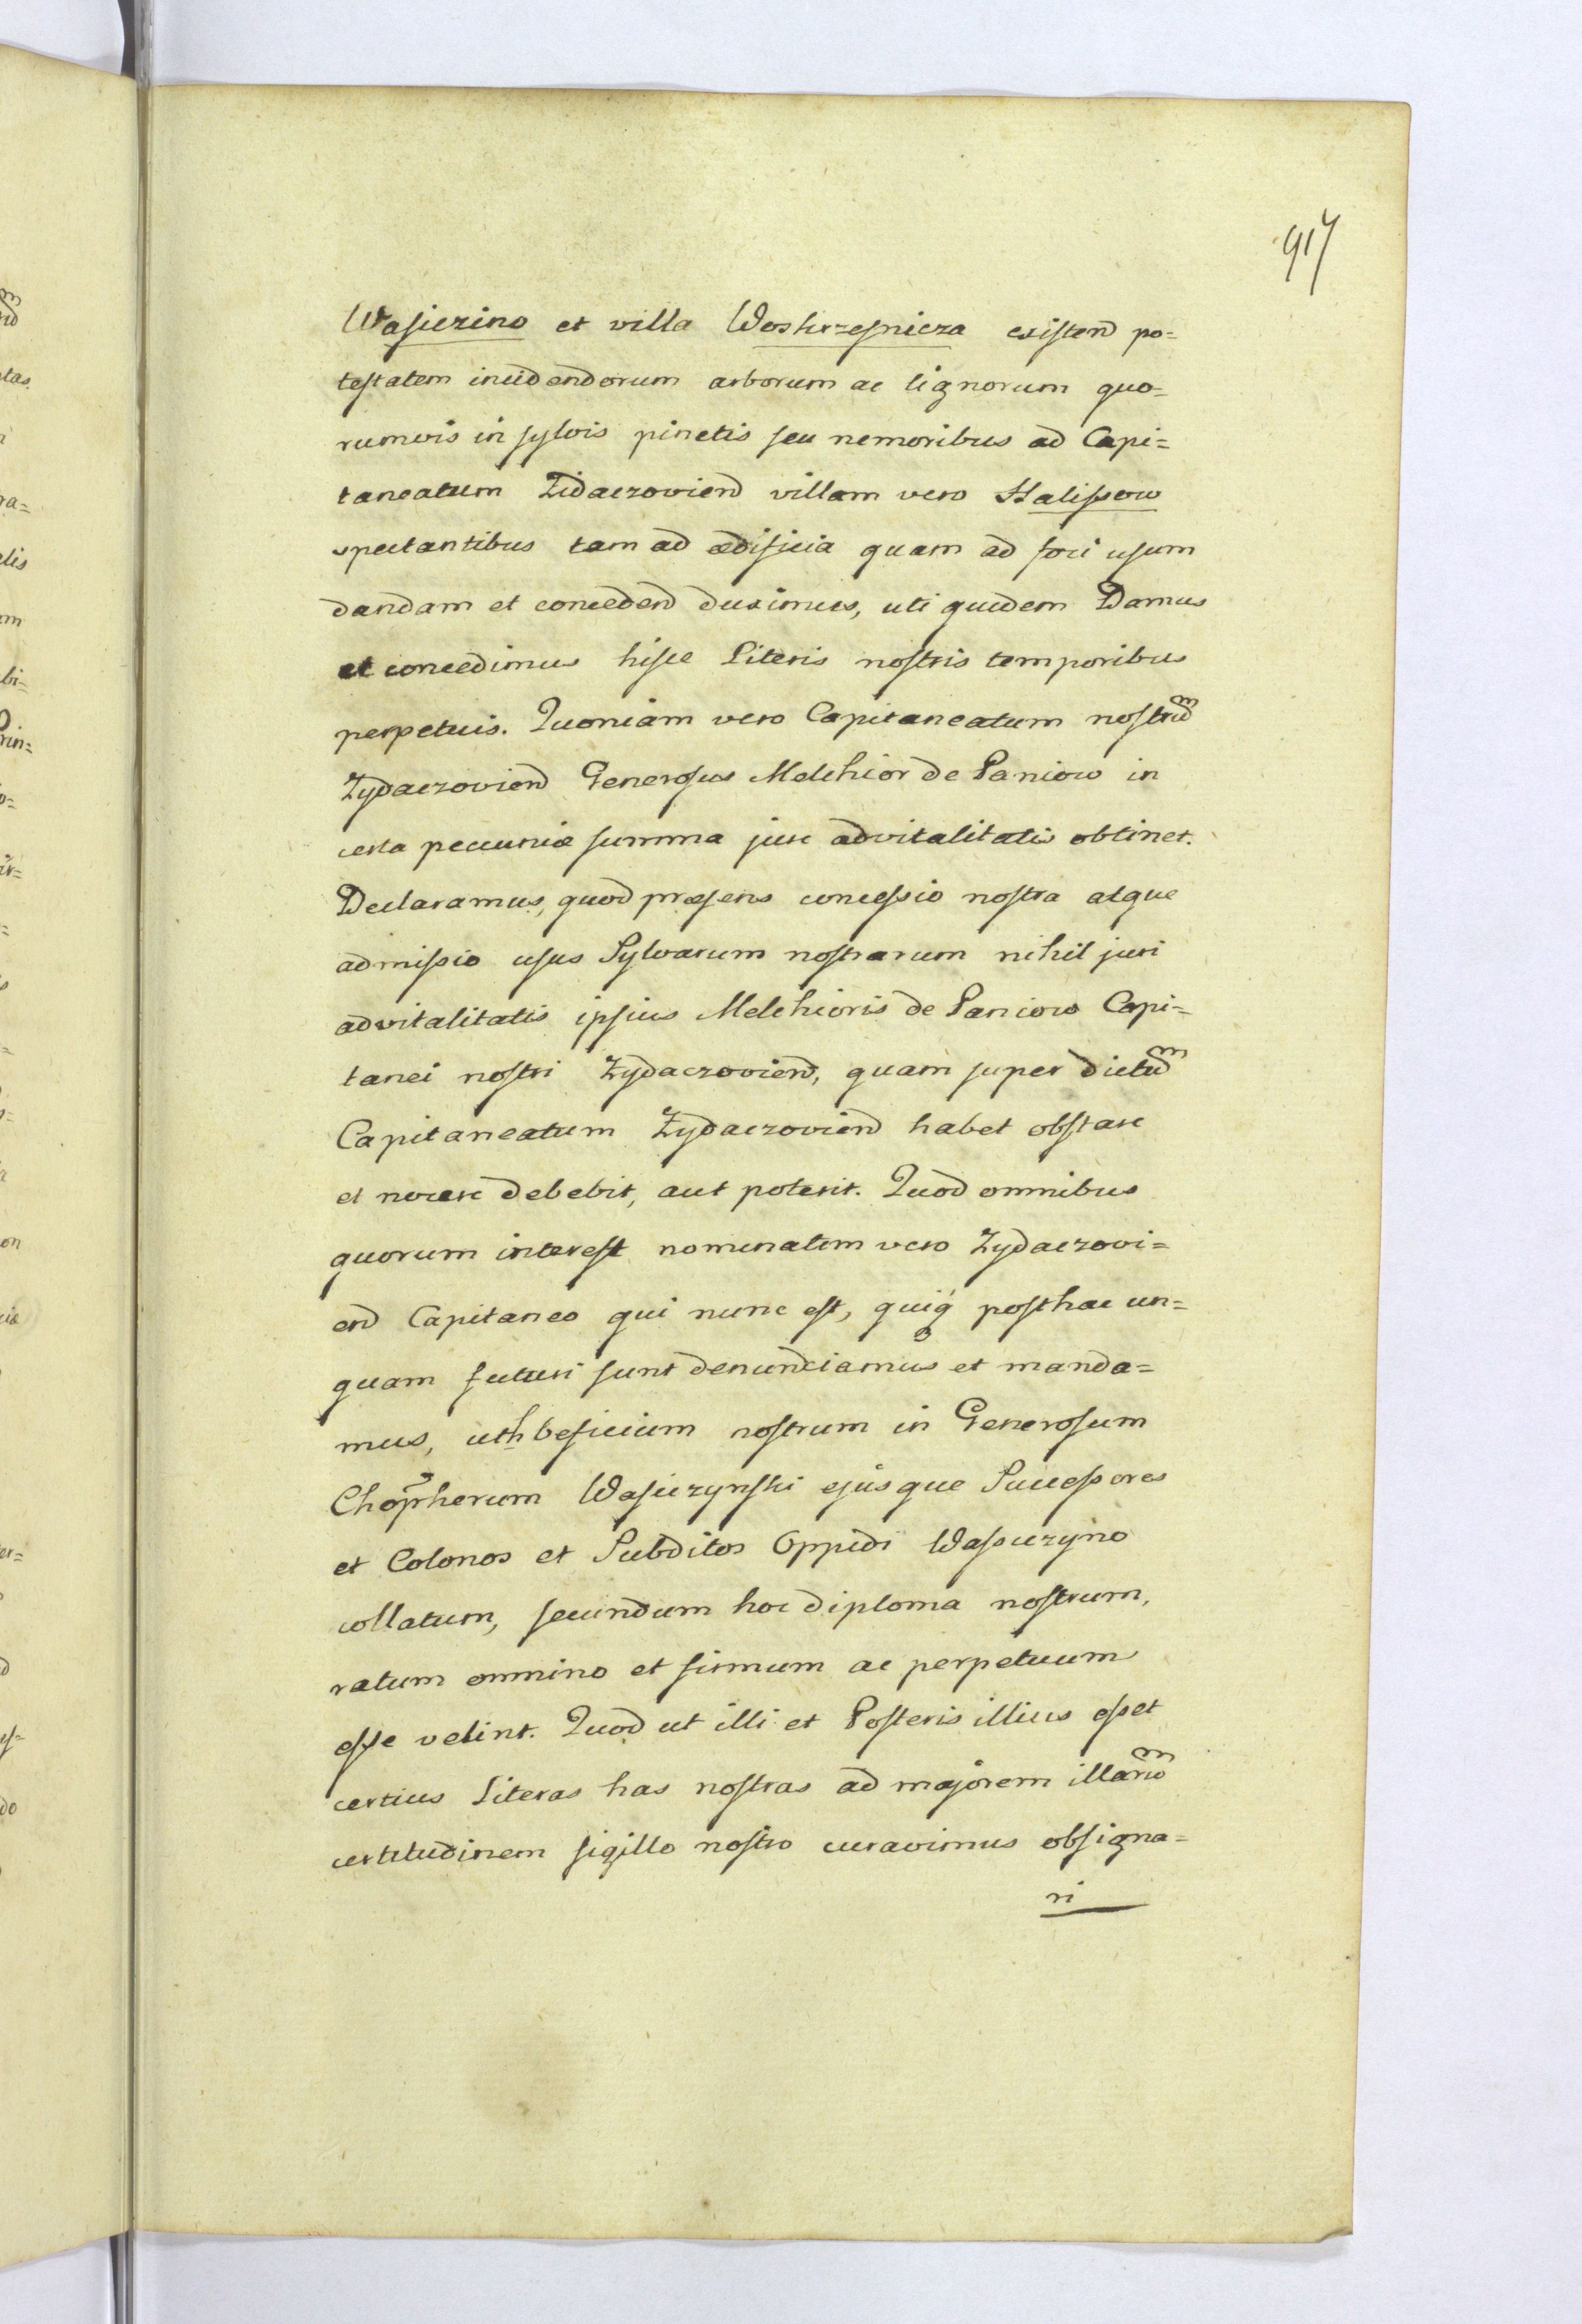 917
Wasiczino et villa Woskrzesnicza existend po=
testatem incidendorum arborum ac lignorum quo=
rumvis in sylvis pinetis seu nemoribus ad Capi=
taneatum Zidaczoviend villam vero Halissow
spectantibus tam ad ædificia quam ad foci usum
dandam et concedend duximus, uti quidem Damus
et concedimus hisce Literis nostris temporibus
perpetuis. Quoniam vero Capitaneatum nostrum
Zydaczoviend Generosus Melchior de Paniow in
certa pecuniæ summa jure advitalitatis obtinet.
Declaramus, quod præsens concessio nostra atque
admissio usus Sylvarum nostrarum nihil juri
advitalitatis ipsius Melchioris de Paniow Capi=
tanei nostri Zydaczoviend, quam super dictum
Capitaneatum Zydaczoviend habet obstare
et nocere debebit, aut poterit. Quod omnibus
quorum interest nominatim vero Zydaczovi=
end Capitaneo qui nunc est, quiq posthac un=
quam futuri sunt denunciamus et manda=
mus, uth beficium nostrum in Generosum
Chopherum Wasiczynski ejusque Successores
et Colonos et Subditos Oppidi Wasiczyno
collatum, secundum hoc diploma nostrum,
ratum omnino et firmum ac perpetuum
esse velint. Quod ut illi et Posteris illius esset
certius Literas has nostras ad majorem illarum
certitudinem sigillo nostro curavimus obsigna=
ri